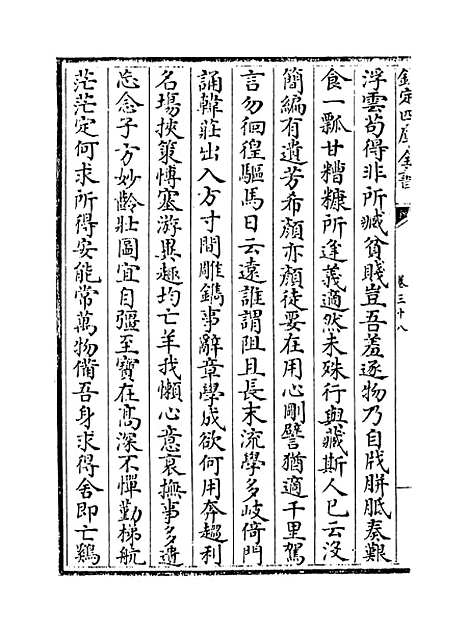 欽定四庫全書
卷三十八
浮雲苟得非所臧貧賤豈吾羞逐物乃自戕胼胝奏艱
食一瓢甘糟糠所逢義適然未殊行與藏斯人已云沒
簡編有遺芳希顔亦顔徒要在用心剛譬猶適千里駕
言勿徊徨驅馬日云遠誰謂阻且長末流學多岐倚門
誦韓莊出入方寸間雕鐫事辭章學成欲何用奔趨利
名場挾策愽塞游異趣均亡羊我懶心意衰撫事多遺
忘念子方妙齡壯圖宜自彊至寳在高深不憚勤梯航
茫茫定何求所得安能常萬物備吾身求得舍即亡鷄